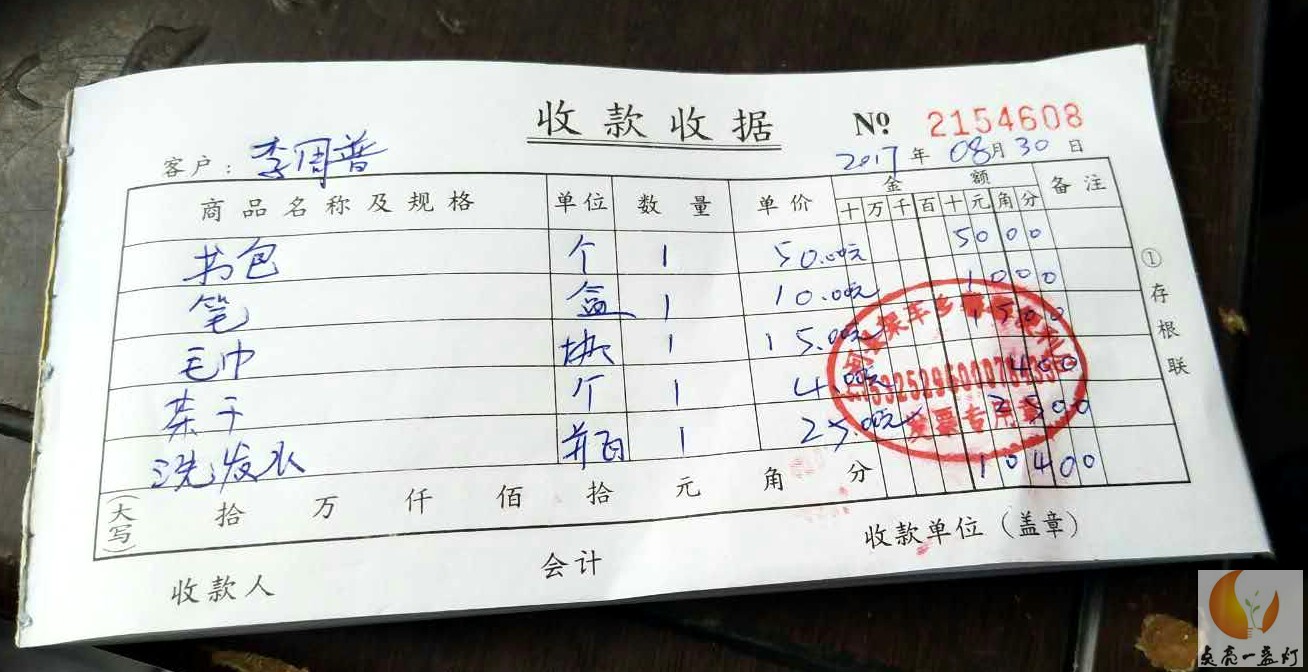 收款收据
№ 2154608
客户：李周普
2017年08月30日
商品名称及规格 单位 数量 单价 金额 备注
十万千百十元角分
书包 个 1 50.00元 5000
笔 盒 1 10.00元 1000
毛巾 块 1 15.00元 1500
茶干 个 1 4.00元 400
洗发水 瓶 1 25.00元 2500
(大写) 拾 万 仟 佰 拾 元 角 分 10400
①存根联
发票专用章
收款人 会计 收款单位（盖章）
点亮一盏灯